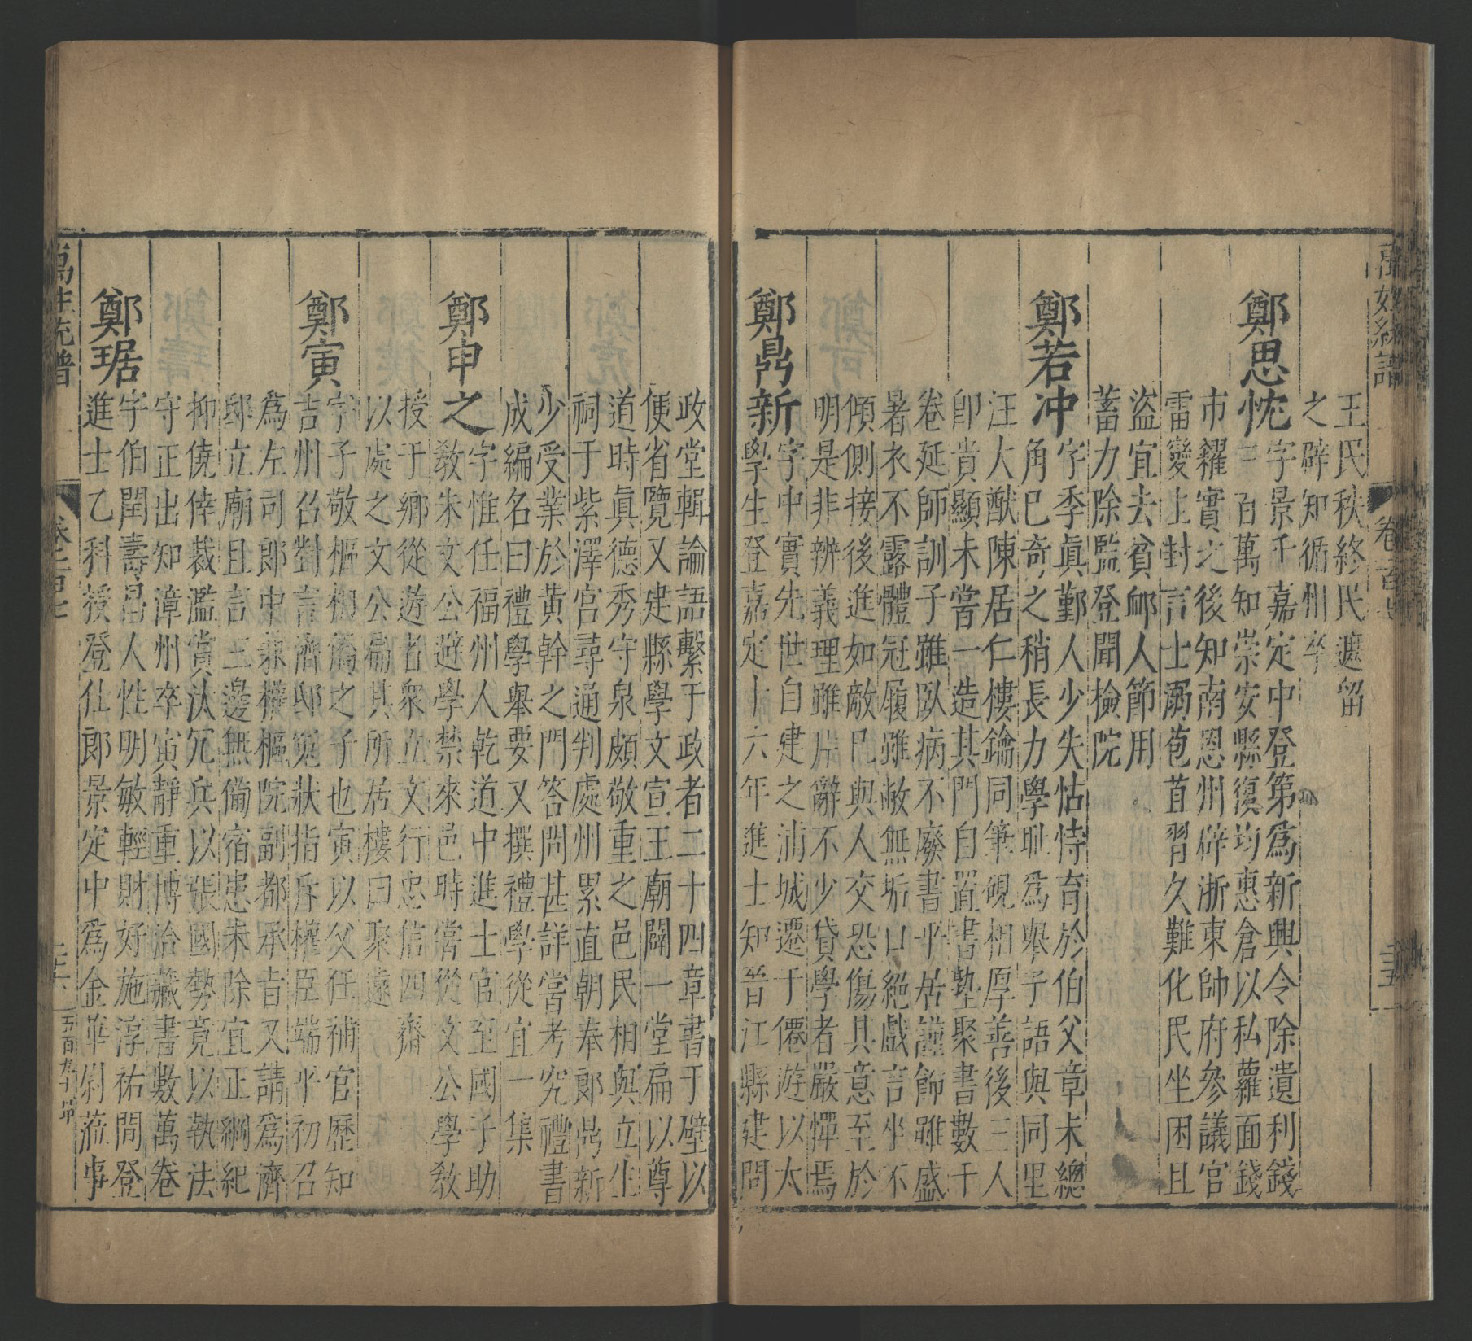 萬姓統譜
卷百七
王民秋終民遮留
之辟知循州卒
鄭思忱
字景千嘉定中登第爲新興令除遺利錢
三百萬知崇安縣復均惠倉以私蘿面錢
市糴實之後知南恩州辟浙東帥府參議官
雷變上封言士溺苞苴習久難化民坐困且
盜宜去貧邮人節用
蓄力除監登聞檢院
鄭若冲
字季眞鄞人少失怙恃育於伯父章未總
角巳奇之稍長力學耻爲舉子語與同里
汪大猷陳居仁樓鑰同筆硯相厚善後三人
卽貴顯未嘗一造其門自置書塾聚書數千
卷延師訓子雖臥病不廢書平居謹飾雖盛
暑衣不露體冠履雖敝無垢口絕戲言坐不
傾側接後進如敵巳與人交恐傷其意至於
明是非辨義理雖片辭不少貸學者嚴憚焉
鄭鼎新
字中實先世自建之浦城遷于僊遊以太
學生登嘉定十六年進士知晉江縣建問
政堂輯論語繫于政者二十四章書于壁以
便省覽又定縣學文宣王廟闢一堂扁以尊
道時眞德秀守泉頗敬重之邑民相與立生
祠于紫澤宮尋通判處州累直朝奉郎鼎新
少受業於黃幹之門答問甚詳嘗考究禮書
成編名曰禮學舉要又撰禮學從宜一集
鄭申之
字惟任福州人乾道中進士官至國子助
敎朱文公避學禁來邑時嘗從文公學敎
授于鄉從遊者衆立文行忠信四齋
以處之文公扁其所居樓曰聚遠
鄭寅
字子敬樞相僑之子也寅以父任補官歷知
吉州召對言濟邸寃狀指斥權臣端平初召
爲左司郎中兼權樞院副都承旨又請爲濟
邸立廟且言三邊無備宿患未除宜正綱紀
抑僥倖裁濫賞汰冗兵以張國勢竟以執法
守正出知漳州卒寅靜重博洽藏書數萬卷
鄭琚
字伯閏壽昌人性明敏輕財好施淳祐間登
進士乙科授登仕郎景定中爲金華尉蒞事
萬姓統譜